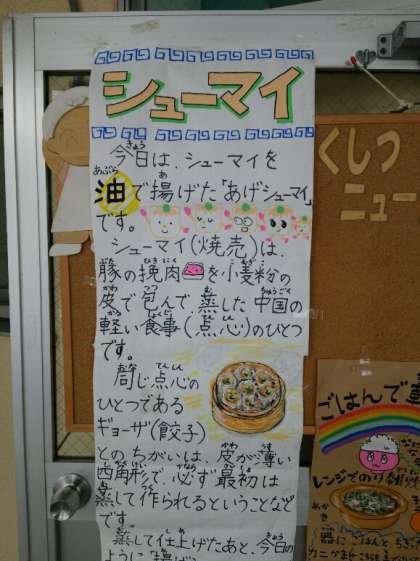 シューマイ
今日は、シューマイを
油で揚げた「あげシューマイ」
です。
シューマイ(焼売)は、
豚の挽肉を小麦粉の
皮で包んで、蒸した中国の
軽い食事(点心)のひとつ
です。
同じ点心の
ひとつである
ギョーザ(餃子)
とのちがいは、皮が薄い
四角形で、必ず最初は
蒸して作られるということなど
です。
蒸して仕上げたあと、今日の
ように
くしつ
ニュー
ごはんで
レンジでのり
器にごはんと